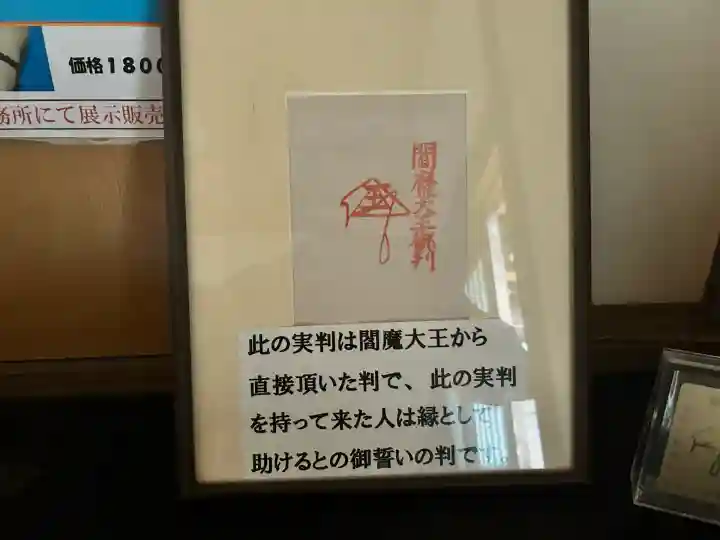 価格１８００
務所にて展示販売
閻魔大王御判
此の実判は閻魔大王から
直接頂いた判で、此の実判
を持って来た人は縁として
助けるとの御誓いの判です。